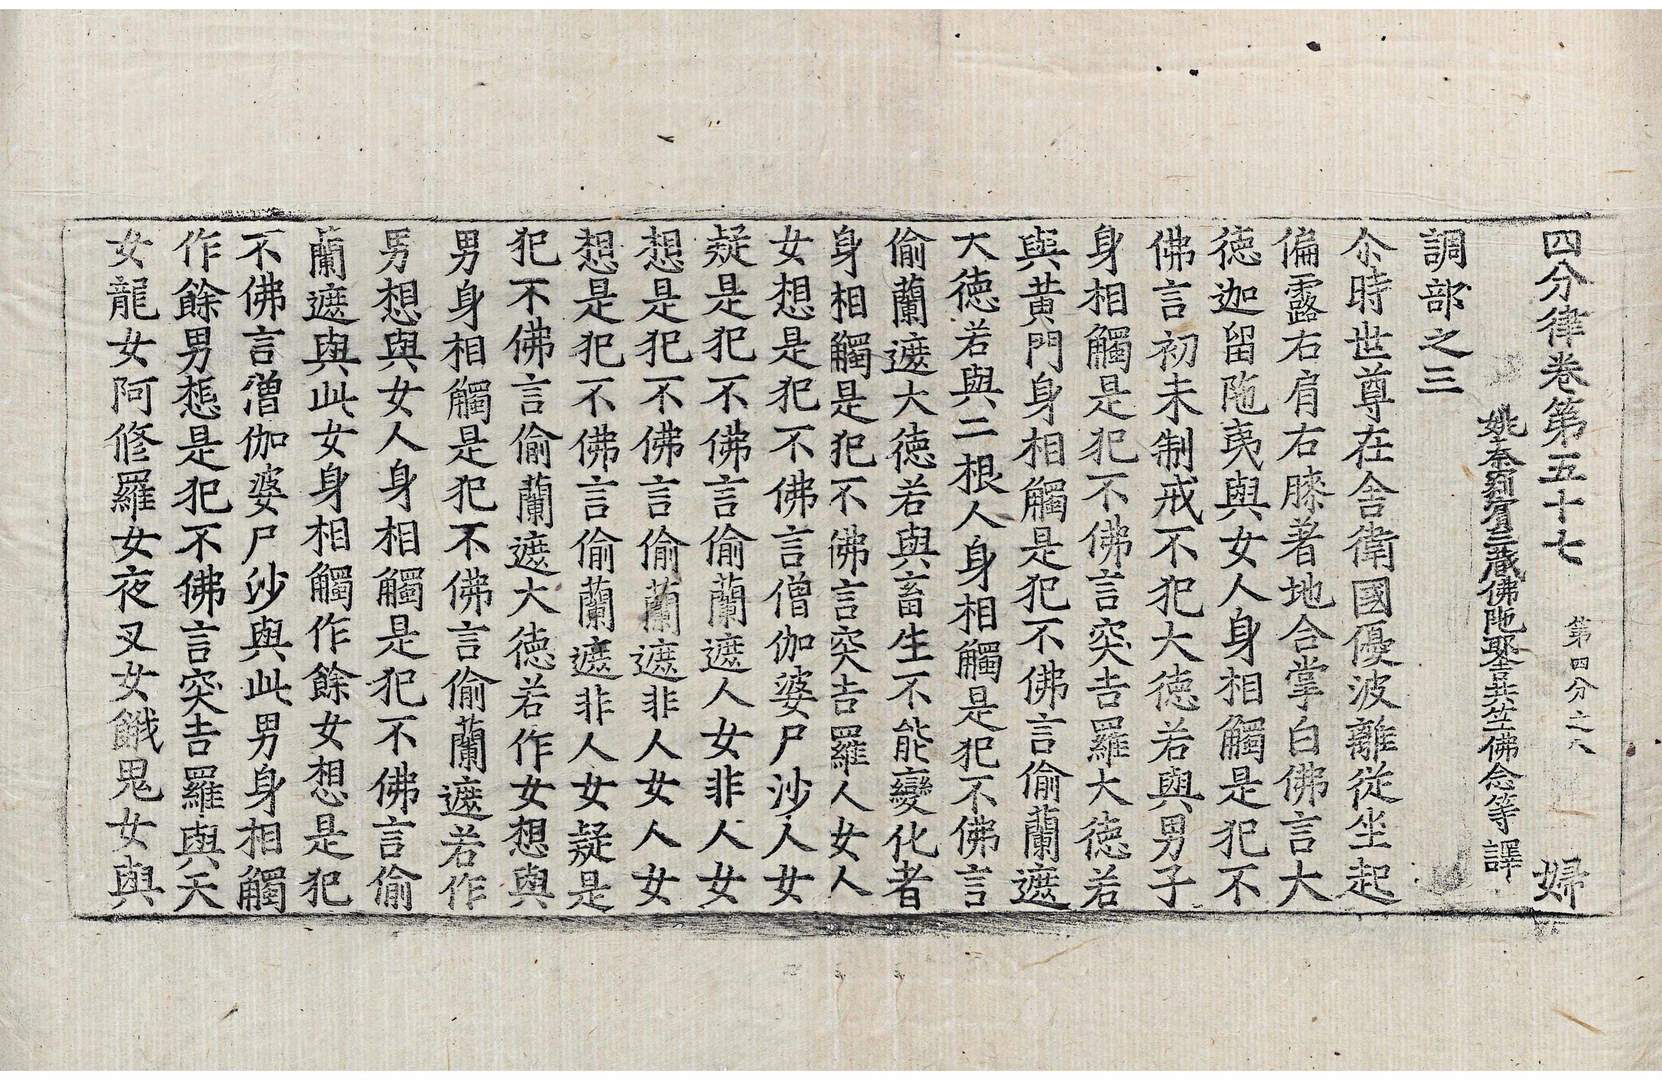 四分律卷第五十七 第四分之八 婦
姚秦罽賓三藏佛陁耶舍共竺佛念等 譯
調部之三
尒時世尊在舍衛國優波離從坐起
偏露右肩右膝著地合掌白佛言大
德迦留陁夷與女人身相觸是犯不
佛言初未制戒不犯大德若與男子
身相觸是犯不佛言突吉羅大德若
與黃門身相觸是犯不佛言偷蘭遮
大德若與二根人身相觸是犯不佛言
偷蘭遮大德若與畜生不能變化者
身相觸是犯不佛言突吉羅人女人
女想是犯不佛言僧伽婆尸沙人女
疑是犯不佛言偷蘭遮人女非人女
想是犯不佛言偷蘭遮非人女人女
想是犯不佛言偷蘭遮非人女疑是
犯不佛言偷蘭遮大德若作女想與
男身相觸是犯不佛言偷蘭遮若作
男想與女人身相觸是犯不佛言偷
蘭遮與此女身相觸作餘女想是犯
不佛言僧伽婆尸沙與此男身相觸
作餘男想是犯不佛言突吉羅與天
女龍女阿修羅女夜叉女餓鬼女與